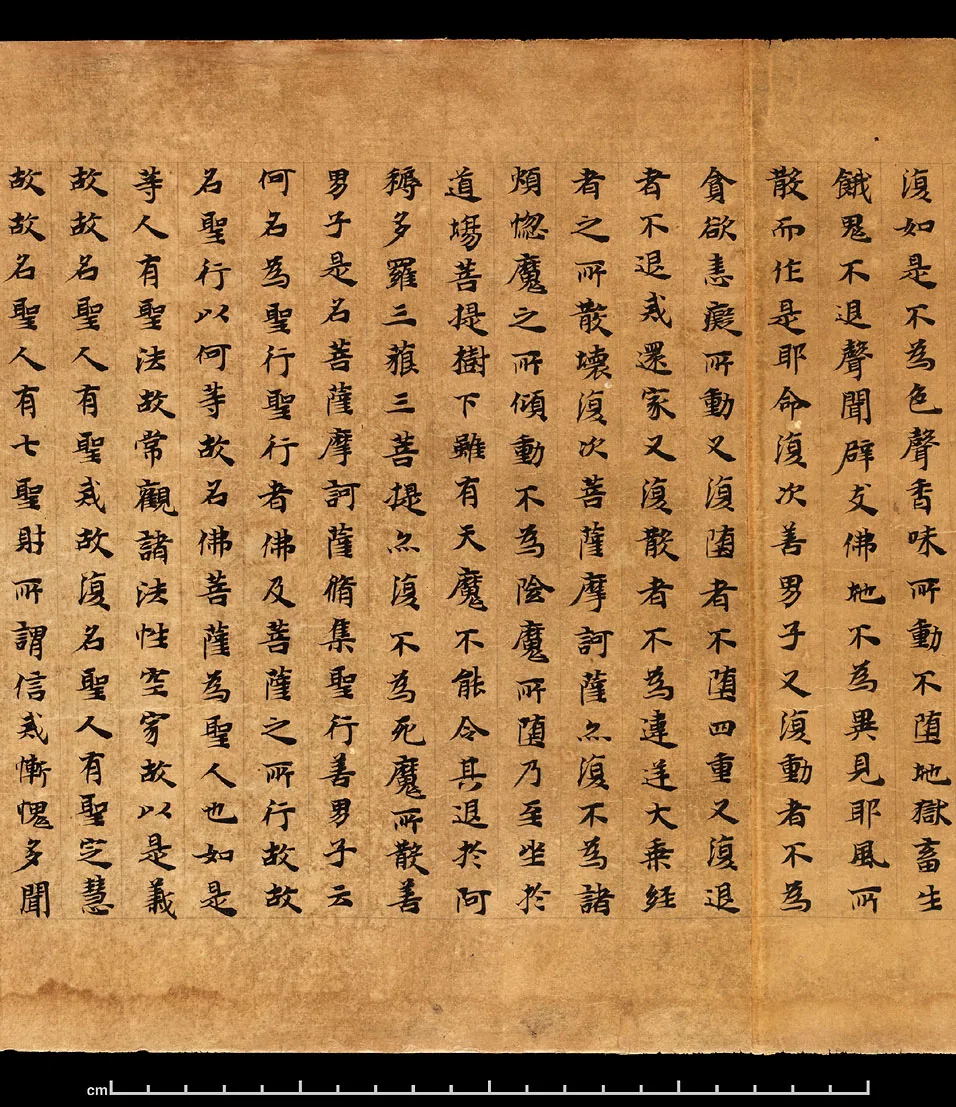 復如是不為色聲香味所動不墮地獄畜生
餓鬼不退聲聞辟支佛地不為異見耶風所
散而作是耶命復次善男子又復動者不為
貪欲恚癡所動又復墮者不墮四重又復退
者不退戒還家又復散者不為違逆大乘經
者之所散壞復次菩薩摩訶薩亦復不為諸
煩惚魔之所傾動不為陰魔所墮乃至坐於
道場菩提樹下雖有天魔不能令其退於阿
耨多羅三藐三菩提亦復不為死魔所散善
男子是名菩薩摩訶薩脩集聖行善男子云
何名為聖行聖行者佛及菩薩之所行故故
名聖行以何等故名佛菩薩為聖人也如是
等人有聖法故常觀諸法性空寂故以是義
故故名聖人有聖戒故復名聖人有聖定慧
故故名聖人有七聖財所謂信戒慚愧多聞
cm